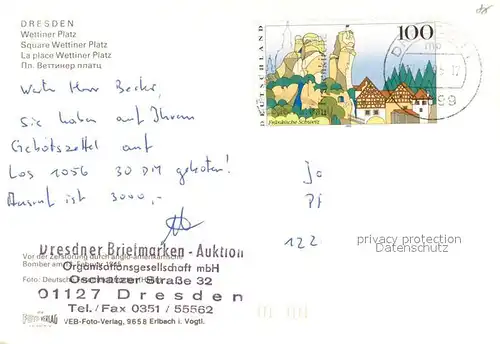 DRESDEN
Wettiner Platz
Square Wettiner Platz
La place Wettiner Platz
Пл. Веттинер платц
DEUTSCHLAND
100
Fränkische Schweiz
Herr Becker,
Sie haben auf Ihrem
Gebotszettel auf
Los 1056 30 DM geboten!
Ausruf ist 3000,-
122
privacy protection
Datenschutz
Vor der Zerstörung durch anglo-amerikanische
Bomber am 13. Februar 1945
Dresdner Briefmarken - Auktion
Organisationsgesellschaft mbH
Oschatzer Straße 32
01127 Dresden
Tel./Fax 0351 / 55562
Foto: Deutsche
VERLAG
VEB-Foto-Verlag, 9658 Erlbach i. Vogtl.